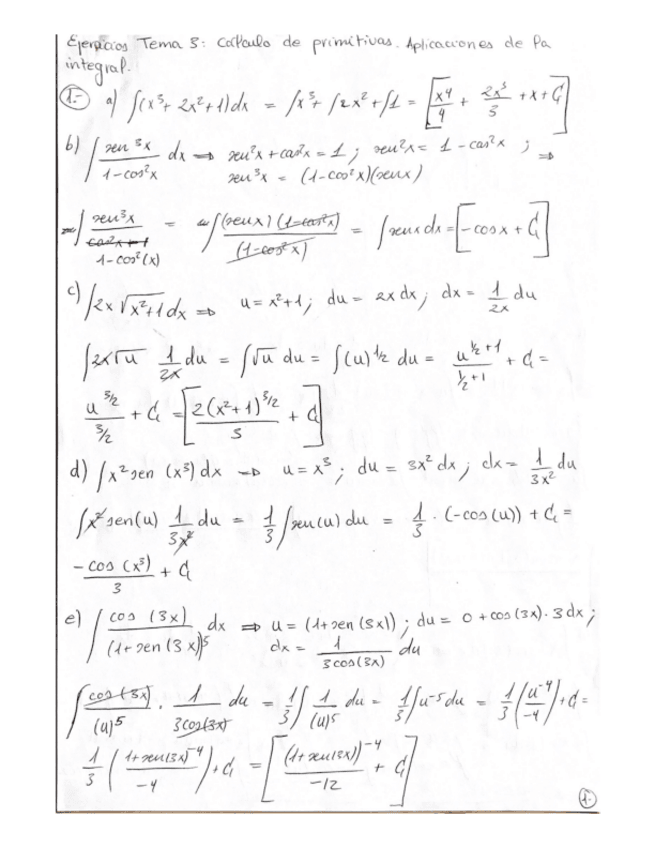 Ejercicios Tema 3: Cálculo de primitivas. Aplicaciones de la
integral.
1.- a) ∫(x³+2x²+1)dx = ∫x³+∫2x²+∫1 = [x⁴/4 + 2x³/3 + x + C₁]
b) ∫ sen³x/(1-cos²x) dx ⇒ sen²x+cos²x = 1; sen²x = 1-cos²x; ⇒
sen³x = (1-cos²x)(senx)
∫ sen³x/(1-cos²(x)) = ∫ (senx)(1-cos²x)/(1-cos²x) = ∫senx dx = [-cosx + C₁]
c) ∫2x √(x²+1) dx ⇒ u = x²+1; du = 2x dx; dx = 1/2x du
∫2x√u 1/2x du = ∫√u du = ∫(u)^1/2 du = u^(1/2+1)/(1/2+1) + C₁ =
u^3/2/(3/2) + C₁ = [2(x²+1)^3/2/3 + C₁]
d) ∫x² sen (x³) dx → u = x³; du = 3x² dx; dx = 1/3x² du
∫x² sen(u) 1/3x² du = 1/3 ∫sen(u) du = 1/3 · (-cos(u)) + C₁ =
-cos (x³)/3 + C₁
e) ∫ cos (3x)/(1+sen(3x))⁵ dx ⇒ u = (1+sen(3x)); du = 0+cos(3x)·3dx;
dx = 1/3cos(3x) du
∫ cos(3x)/(u)⁵ · 1/3cos(3x) du = 1/3 ∫ 1/(u)⁵ du = 1/3 ∫u⁻⁵ du = 1/3 (u⁻⁴/-4) + C₁ =
1/3 (1+sen(3x)⁻⁴/-4) + C₁ = [(1+sen(3x))⁻⁴/-12 + C₁]
1.